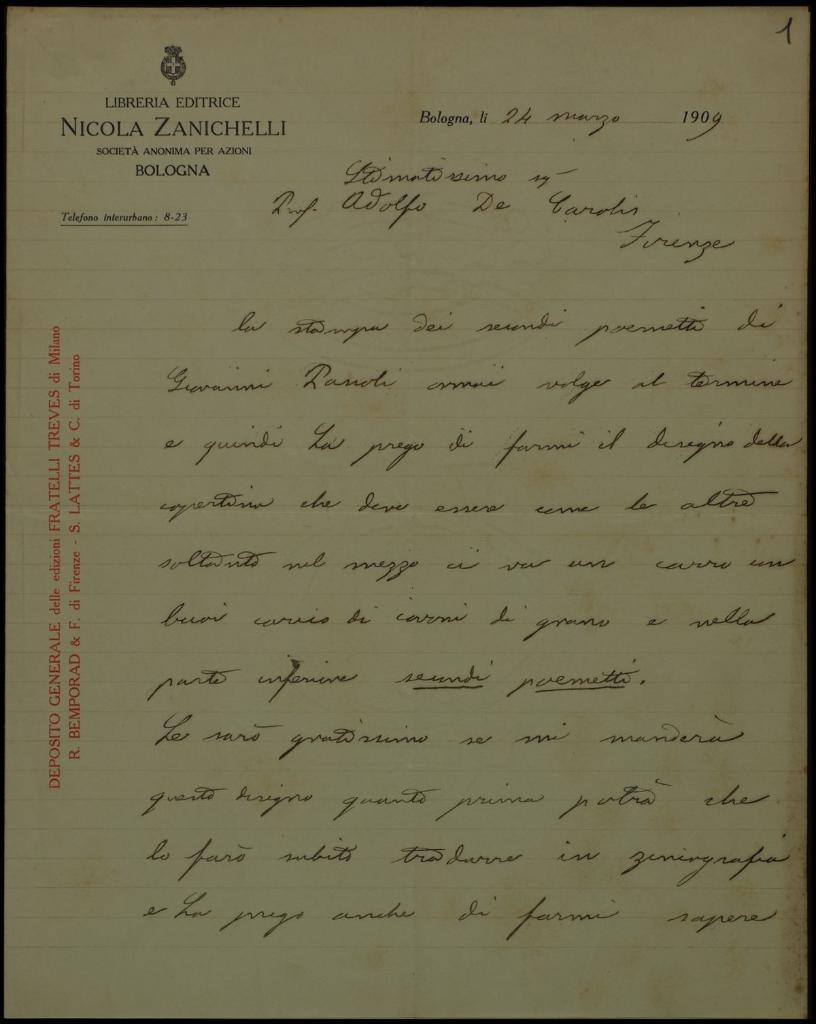 1
LIBRERIA EDITRICE
NICOLA ZANICHELLI
SOCIETÀ ANONIMA PER AZIONI
BOLOGNA
Telefono interurbano: 8-23
Bologna, lì 24 marzo 1909
Stimatissimo sig
Prof. Adolfo De Carolis
Firenze
DEPOSITO GENERALE delle edizioni FRATELLI TREVES di Milano
R. BEMPORAD & F. di Firenze - S. LATTES & C. di Torino
la stampa dei secondi poemetti di
Giovanni Pascoli ormai volge al termine
e quindi La prego di farmi il disegno della
copertina che deve essere come le altre
soltanto nel mezzo ci va un carro con
buoi carico di covoni di grano e nella
parte inferiore secondi poemetti.
Le sarò gratissimo se mi manderà
questo disegno quanto prima potrà che
lo farò subito tradurre in zincografia
e La prego anche di farmi sapere